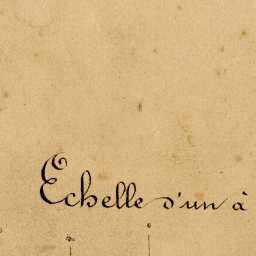 Echelle d'un à